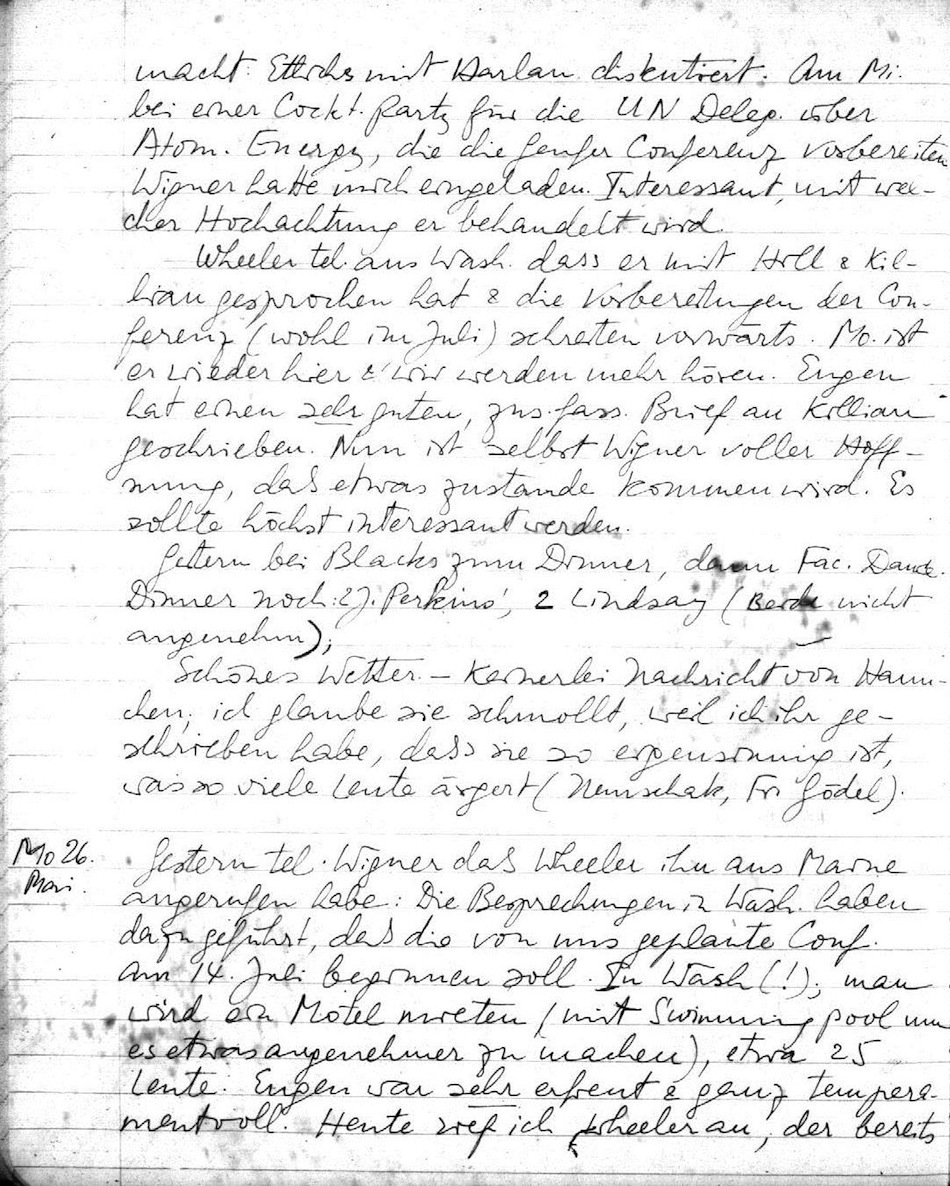 macht. Etliches mit Harlan diskutiert. Am Mi.
bei einer Cockt. Party für die UN Deleg. über
Atom. Energy, die die Genfer Conferenz vorbereiten
Wigner hatte mich eingeladen. Interessant, mit wel-
cher Hochachtung er behandelt wird.
Wheeler tel. aus Wash. dass er mit Hill & Kil-
lian gesprochen hat & die Vorbereitungen der Con-
ferenz (wohl im Juli) schreiten vorwärts. Mo. ist
er wieder hier & wir werden mehr hören. Eugen
hat einen sehr guten, zus.fass. Brief an Killian
geschrieben. Nun ist selbst Wigner voller Hoff-
nung, daß etwas zustande kommen wird. Es
sollte höchst interessant werden.
Gestern bei Blacks zum Dinner, dann Fac. Dance.
Dinner noch: 2 J. Perkins, 2 Lindsay (Beide nicht
angenehm);
Schönes Wetter. – Keinerlei Nachricht von Hann-
chen, ich glaube sie schmollt, weil ich ihr ge-
schrieben habe, dass sie so eigensinnig ist,
was so viele Leute ärgert (Nemschak, Fr. Gödel).
Mo 26.
Mai.
Gestern tel. Wigner daß Wheeler ihn aus Maine
angerufen habe: Die Besprechungen in Wash. haben
dazu geführt, daß die von uns geplante Conf.
am 14. Juli beginnen soll. In Wash (!); man
wird ein Motel mieten (mit Swimming pool um
es etwas angenehmer zu machen), etwa 25
Leute. Eugen war sehr erfreut & ganz tempera-
mentvoll. Heute rief ich Wheeler an, der bereits